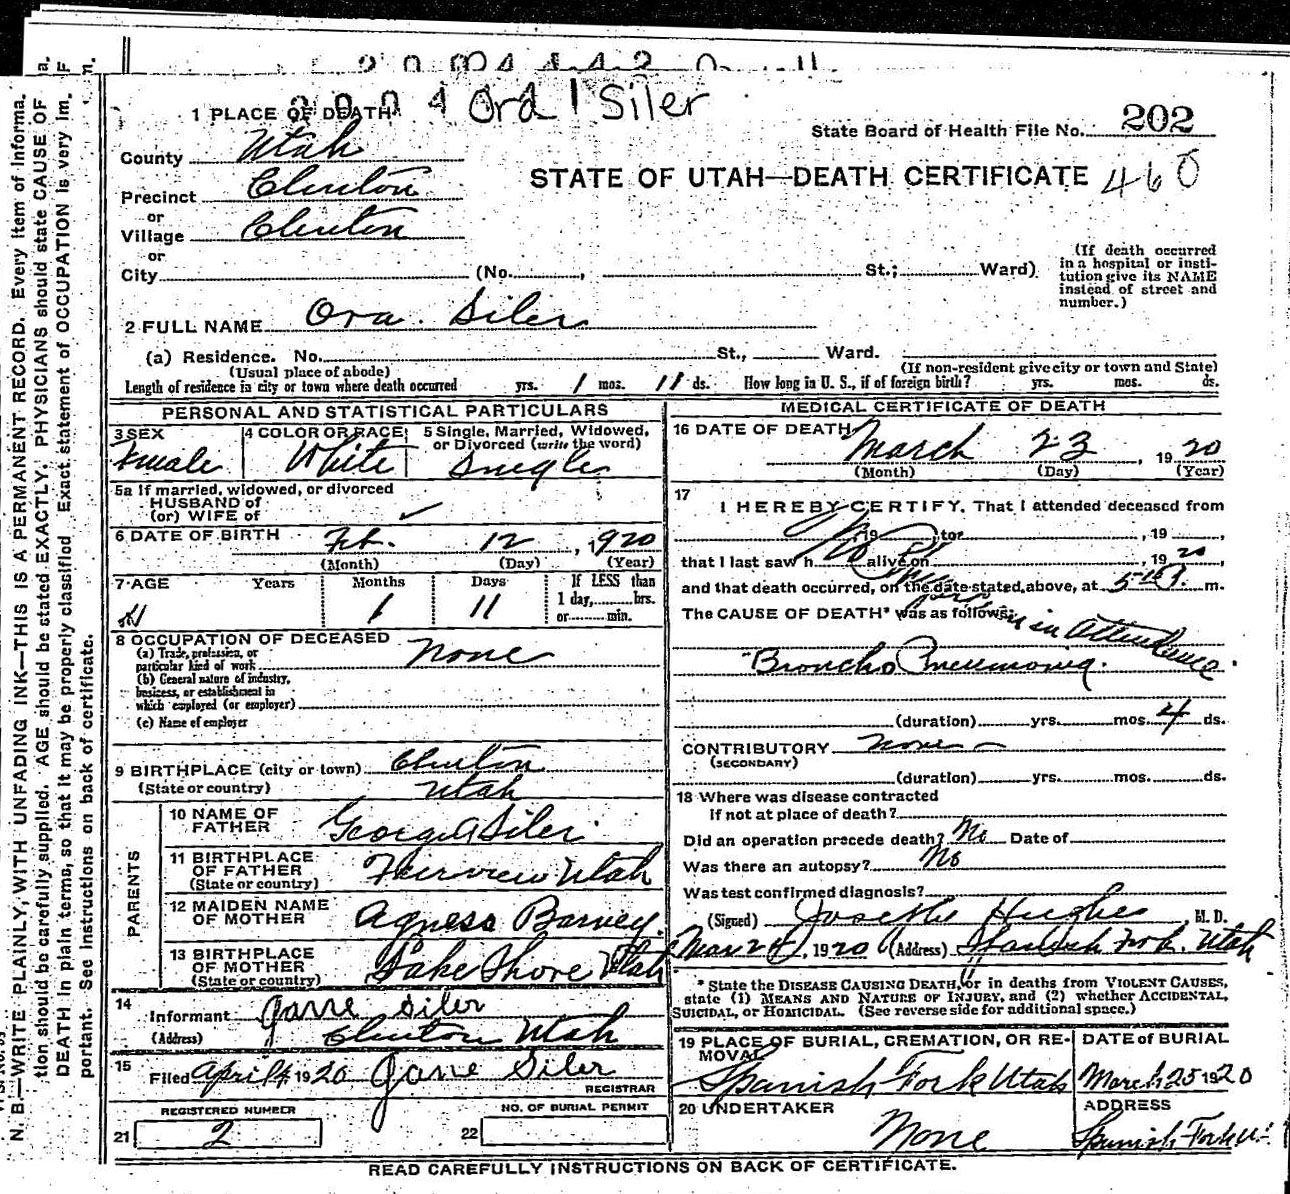 Ord | Siler
1 PLACE OF DEATH
State Board of Health File No. 202
County Utah
STATE OF UTAH—DEATH CERTIFICATE 460
Precinct Clinton
or
Village Clinton
or
City (No. , St.; Ward)
(If death occurred
in a hospital or insti-
tution give its NAME
instead of street and
number.)
2 FULL NAME Ora Siler
(a) Residence. No. St., Ward.
(Usual place of abode) (If non-resident give city or town and State)
Length of residence in city or town where death occurred yrs. 1 mos. 11 ds. How long in U. S., if of foreign birth? yrs. mos. ds.
PERSONAL AND STATISTICAL PARTICULARS
3 SEX
Female
4 COLOR OR RACE
White
5 Single, Married, Widowed,
or Divorced (write the word)
Single
5a If married, widowed, or divorced
HUSBAND of
(or) WIFE of
6 DATE OF BIRTH Feb. 12, 1920
(Month) (Day) (Year)
7 AGE Years Months Days If LESS than
1 day, hrs.
or min.
1 11
8 OCCUPATION OF DECEASED
(a) Trade, profession, or
particular kind of work None
(b) General nature of industry,
business, or establishment in
which employed (or employer)
(c) Name of employer
9 BIRTHPLACE (city or town) Clinton
(State or country) Utah
PARENTS
10 NAME OF
FATHER George A Siler
11 BIRTHPLACE
OF FATHER Fairview Utah
(State or country)
12 MAIDEN NAME
OF MOTHER Agness Barney
13 BIRTHPLACE
OF MOTHER Lake Shore Utah
(State or country)
14
Informant Jane Siler
(Address) Clinton Utah
15
Filed April 1920 Jane Siler
REGISTRAR
REGISTERED NUMBER
21 2
NO. OF BURIAL PERMIT
22
MEDICAL CERTIFICATE OF DEATH
16 DATE OF DEATH
March 23, 1920
(Month) (Day) (Year)
17
I HEREBY CERTIFY, That I attended deceased from
, 19 , to , 19
that I last saw h alive on , 1920
and that death occurred, on the date stated above, at m.
The CAUSE OF DEATH* was as follows:
No in Attendence
Broncho Pneumonia.
(duration) yrs. mos. 4 ds.
CONTRIBUTORY none
(SECONDARY)
(duration) yrs. mos. ds.
18 Where was disease contracted
if not at place of death?
Did an operation precede death? No Date of
Was there an autopsy? No
Was test confirmed diagnosis?
(Signed) Joseph Hughes, M. D.
Mar 24, 1920 (Address) Spanish Fork. Utah
* State the DISEASE CAUSING DEATH, or in deaths from VIOLENT CAUSES,
state (1) MEANS AND NATURE OF INJURY, and (2) whether ACCIDENTAL,
SUICIDAL, or HOMICIDAL. (See reverse side for additional space.)
19 PLACE OF BURIAL, CREMATION, OR RE-
MOVAL
Spanish Fork Utah
DATE of BURIAL
March 25 1920
20 UNDERTAKER
None
ADDRESS
Spanish Fork U.
READ CAREFULLY INSTRUCTIONS ON BACK OF CERTIFICATE.
N. B.—WRITE PLAINLY, WITH UNFADING INK—THIS IS A PERMANENT RECORD. Every item of informa-
tion should be carefully supplied. AGE should be stated EXACTLY. PHYSICIANS should state CAUSE OF
DEATH in plain terms, so that it may be properly classified. Exact statement of OCCUPATION is very im-
portant. See instructions on back of certificate.